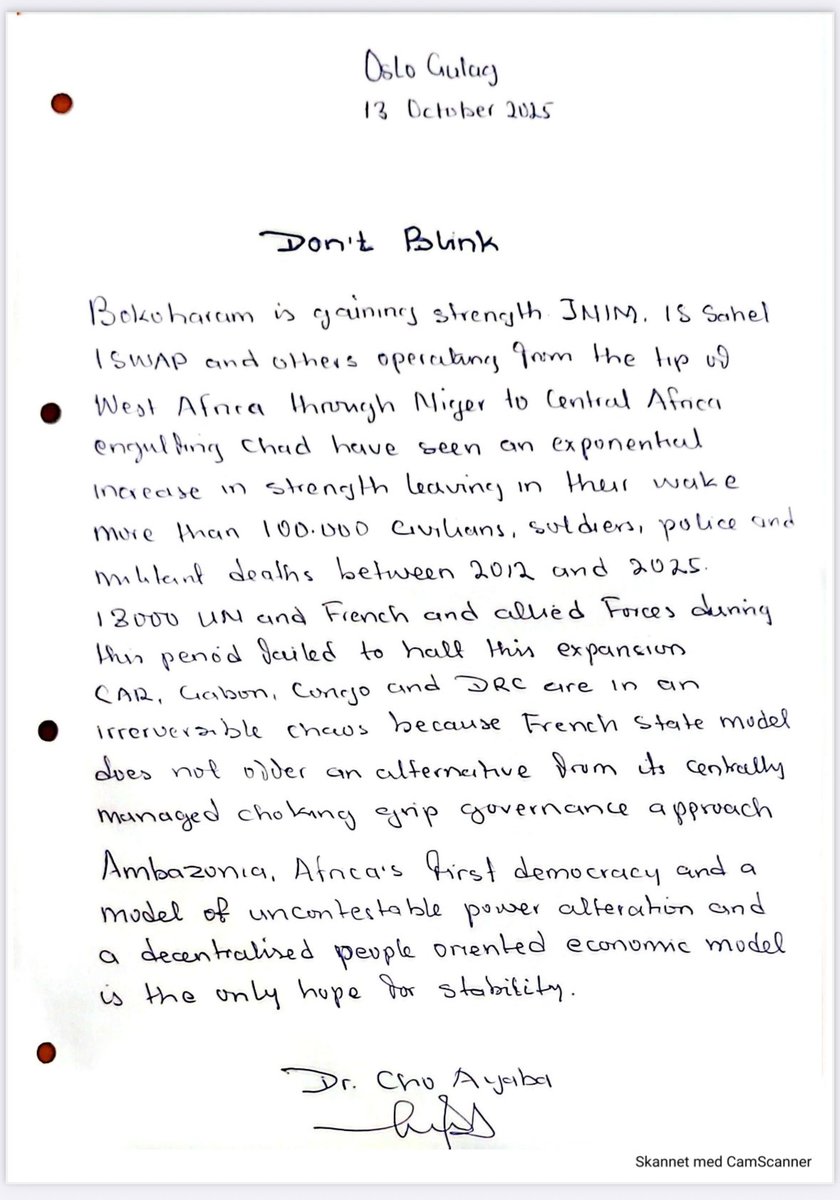 Oslo Gulag
13 October 2025
Don't Blink
Bokoharam is gaining strength JNIM. IS Sahel
ISWAP and others operating from the tip of
West Africa through Niger to Central Africa
engulfing Chad have seen an exponential
increase in strength leaving in their wake
more than 100.000 civilians, soldiers, police and
militant deaths between 2012 and 2025.
18000 UN and French and allied Forces during
this period failed to halt this expansion
CAR, Gabon, Congo and DRC are in an
irrerversible chaos because French state model
does not offer an alternative from its centrally
managed choking grip governance approach
Ambazonia, Africa's first democracy and a
model of uncontestable power alteration and
a decentralised people oriented economic model
is the only hope for stability.
Dr. Cho Ayaba
Skannet med CamScanner